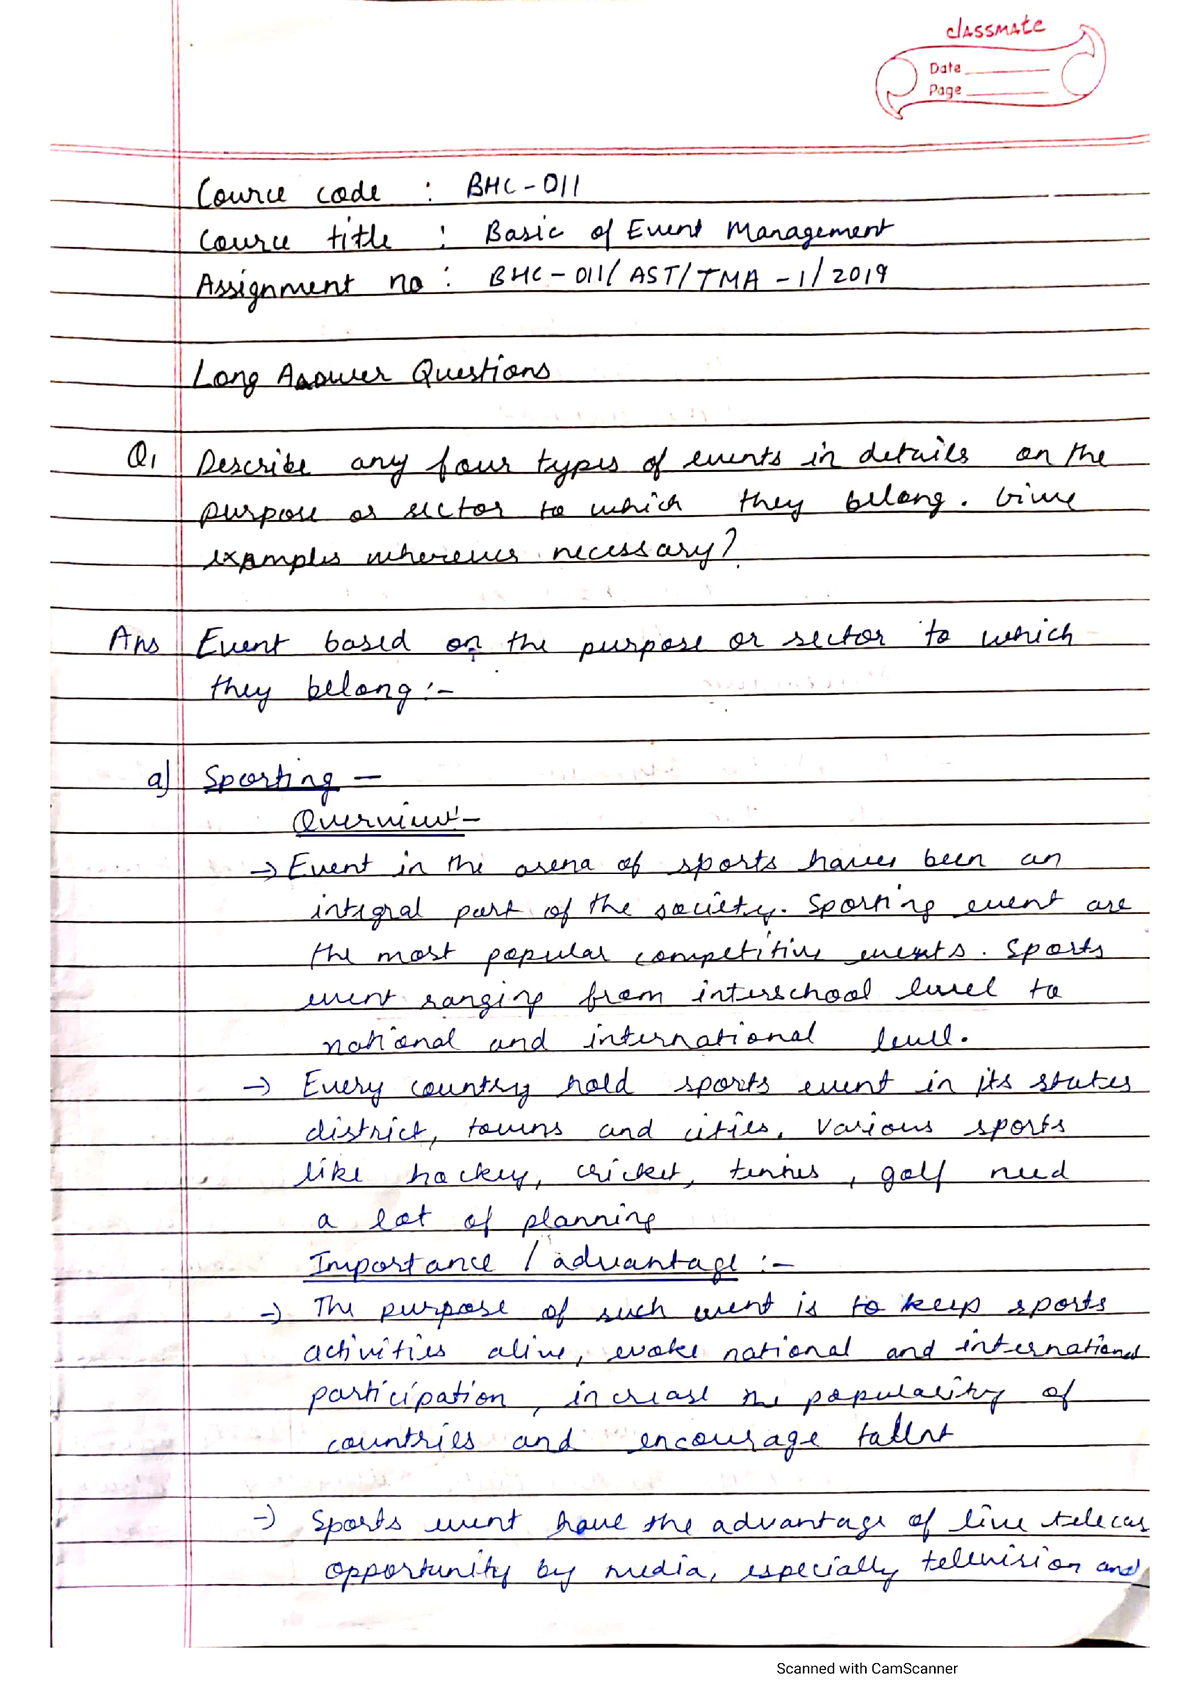 classmate
Date
Page
Cource code : BHC-011
Cource title : Basic of Event Management
Assignment no : BHC-011/AST/TMA-1/2019
Long Answer Questions
Q1 Describe any four types of events in details on the
purpose or sector to which they belong. Give
examples wherever necessary?
Ans Event based on the purpose or sector to which
they belong :-
a) Sporting -
Overview:-
→ Event in the arena of sports haves been an
integral part of the society. Sporting event are
the most popular competitive events. Sports
event ranging from interschool level to
national and international level.
→ Every country hold sports event in its states
district, towns and cities. Various sports
like hockey, cricket, tennies, golf need
a lot of planning
Importance / advantage :-
→ The purpose of such event is to keep sports
activities alive, evoke national and international
participation, increase the popularity of
countries and encourage tallent
→ Sports event have the advantage of live telecas
opportunity by media, especially television and
Scanned with CamScanner